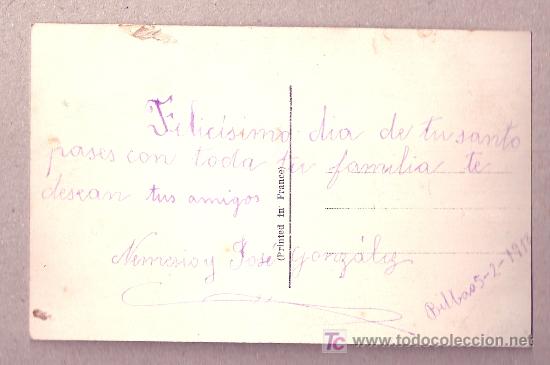 Felicísimo dia de tu santo
pases con toda tu familia te
desean tus amigos
Nemesio y José González
Bilbao 5-2-191
(Printed in France)
TC todocoleccion.net